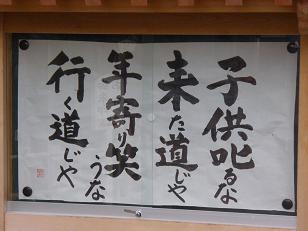 子供叱るな
来た道じゃ
年寄り笑
うな
行く道じゃ